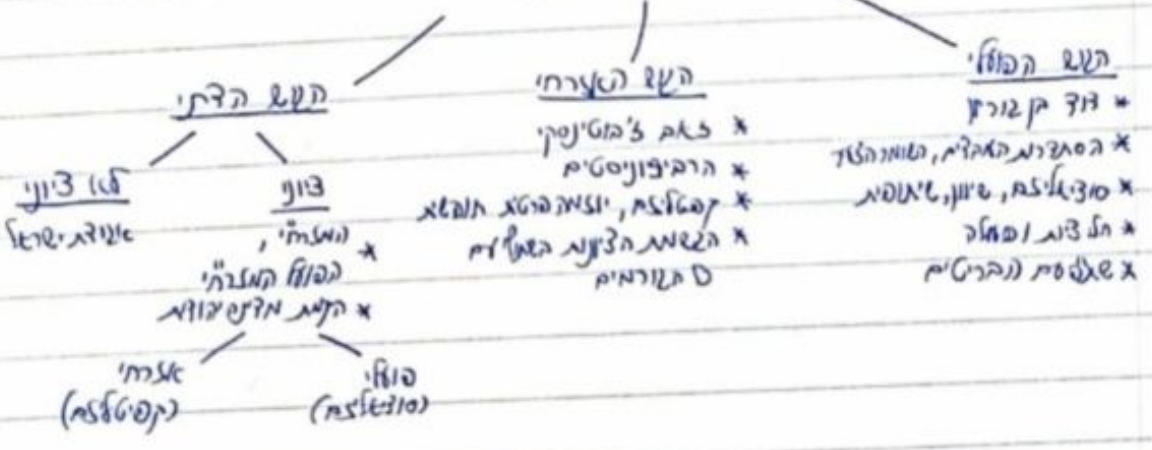 הגוש הפועלי
* דוד בן גוריון
* הסתדרות העובדים, השומר הצעיר
* סוציאליזם, שוויון, שיתופיות
* חלוציות ופעולה
* שת"פ עם הבריטים
הגוש האזרחי
* זאב ז'בוטינסקי
* הרביזיוניסטים
* קפטליזם, יוזמה פרטית חופשית
* הגשמת הציונות בשת"פ עם
כל הגורמים
הגוש הדתי
ציוני
* המזרחי,
הפועל המזרחי
* הקמת מדינה יהודית
פועלי
(סוציאליזם)
אזרחי
(קפיטליזם)
לא ציוני
אגודת ישראל